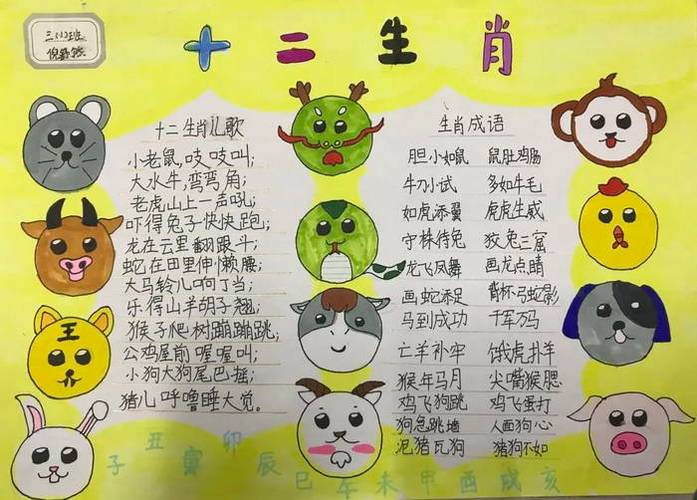 三(1)班
倪
十二生肖
十二生肖儿歌
小老鼠,吱吱叫;
大水牛,弯弯角;
老虎山上一声吼;
吓得兔子快快跑;
龙在云里翻跟斗;
蛇在田里伸懒腰;
大马铃儿响叮当;
乐得山羊胡子翘;
猴子爬树蹦蹦跳;
公鸡屋前喔喔叫;
小狗大狗尾巴摇;
猪儿呼噜睡大觉。
生肖成语
胆小如鼠 鼠肚鸡肠
牛刀小试 多如牛毛
如虎添翼 虎虎生威
守株待兔 狡兔三窟
龙飞凤舞 画龙点睛
画蛇添足 背杯弓蛇影
马到成功 千军万马
亡羊补牢 饿虎扑羊
猴年马月 尖嘴猴腮
鸡飞狗跳 鸡飞蛋打
狗急跳墙 人面狗心
泥猪瓦狗 猪狗不如
王
子丑寅卯辰巳午未申酉戌亥